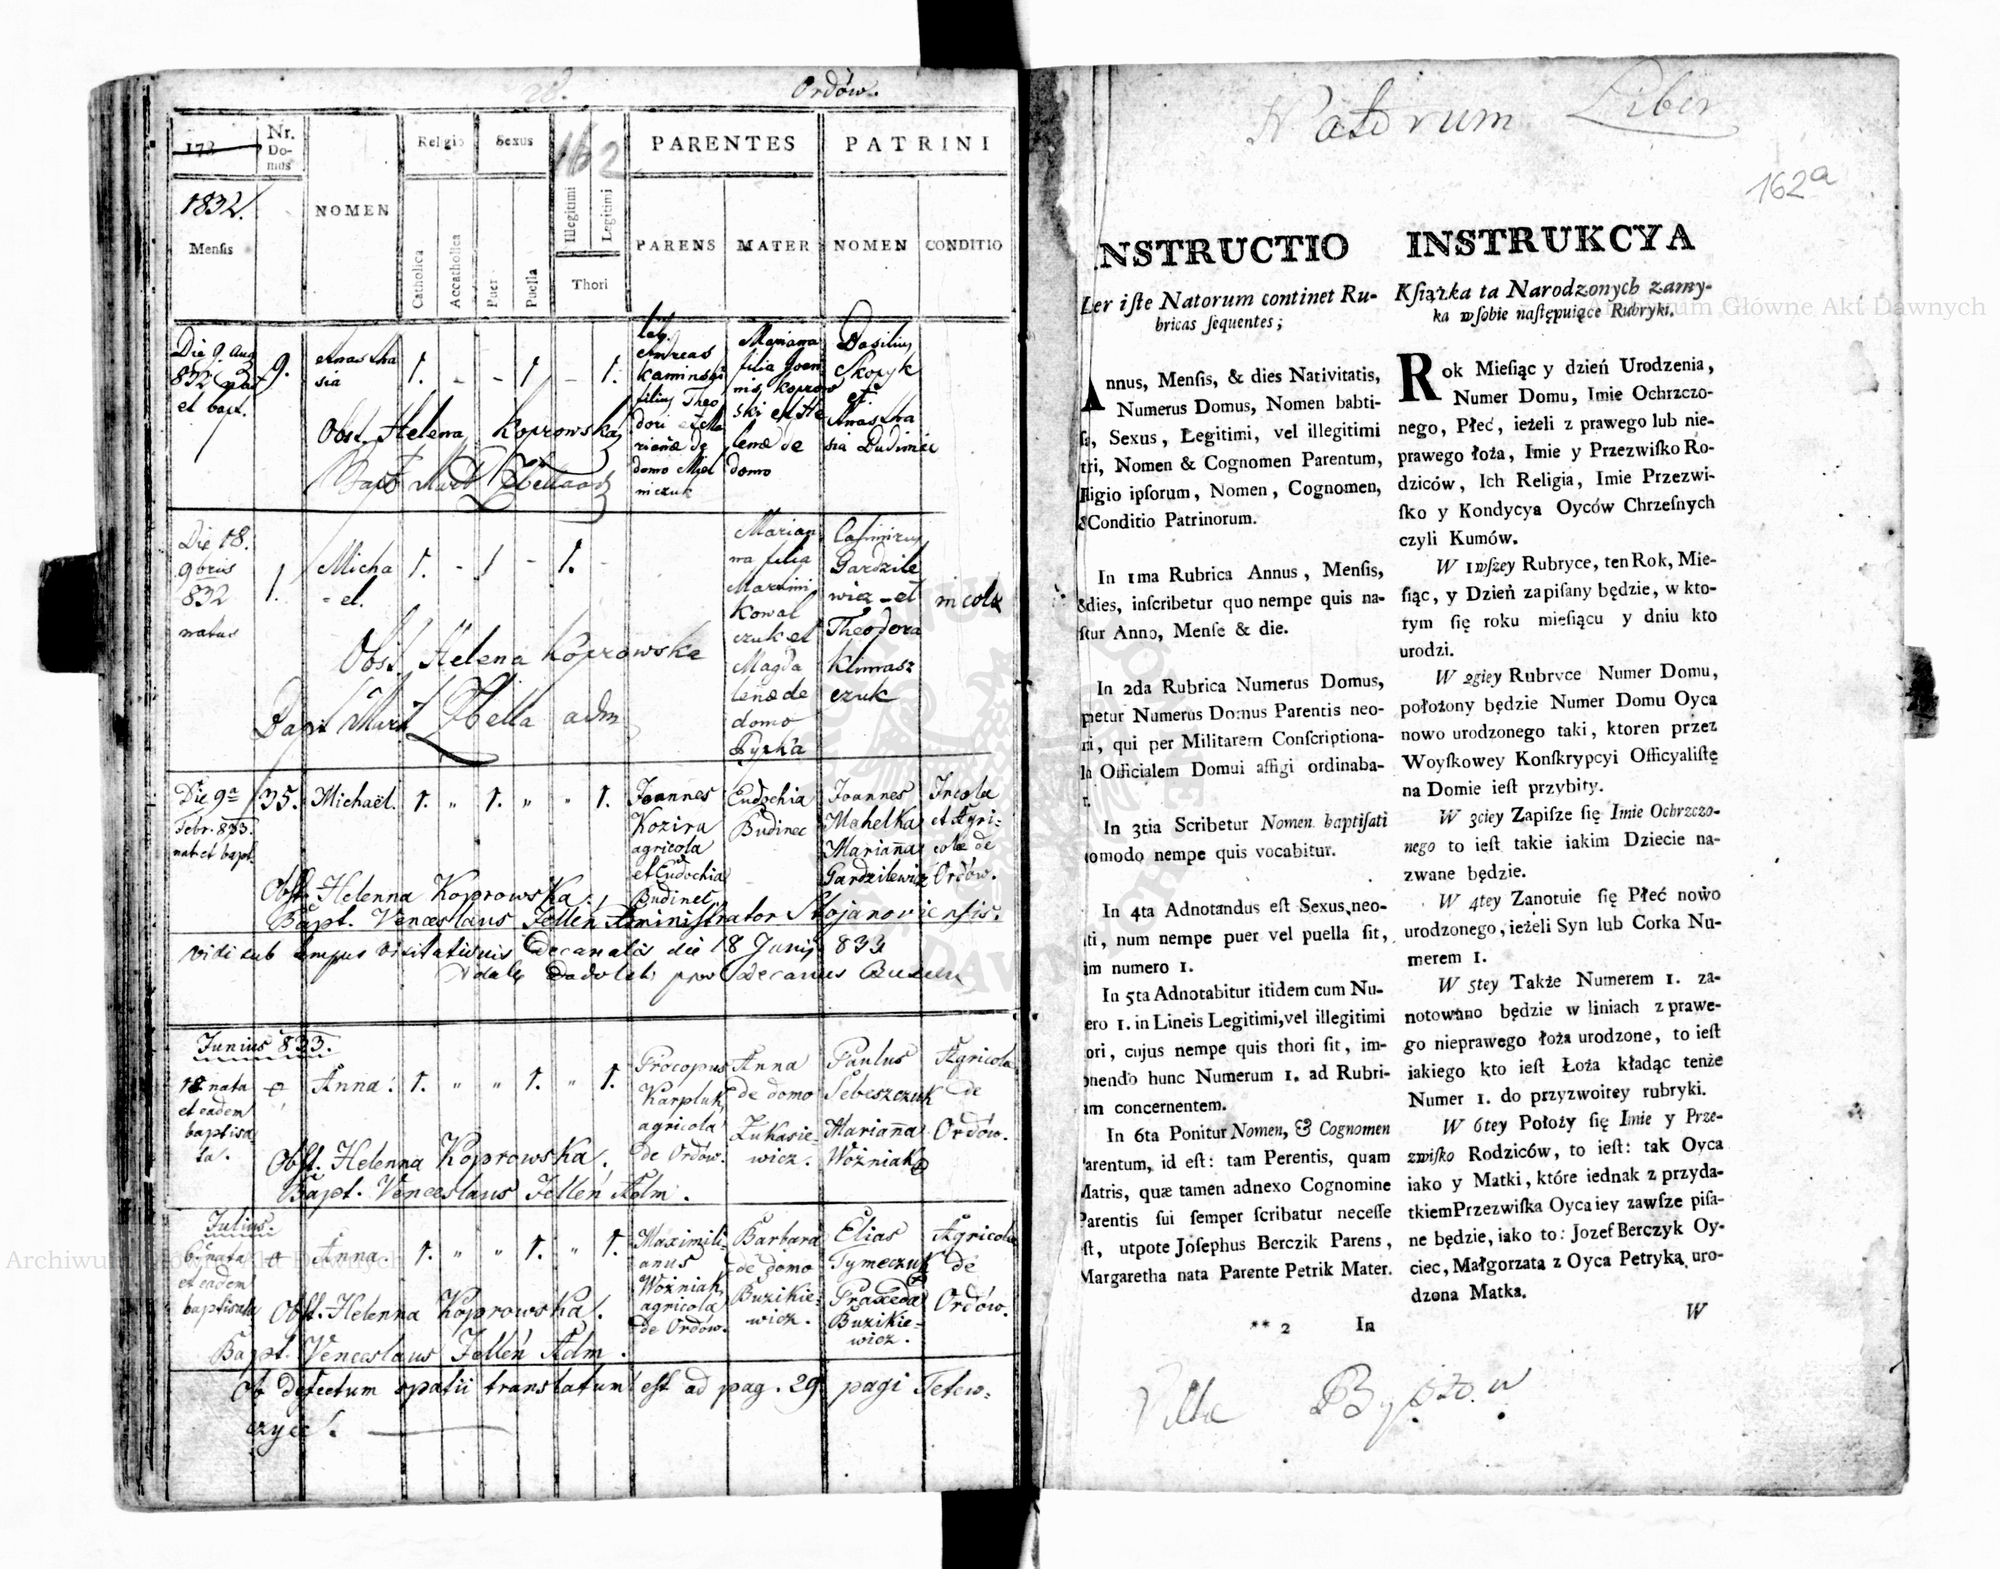 Ordów.
173
Nr. Do-
mus
NOMEN
Religio
Sexus
162
PARENTES
PATRINI
1832.
Mensis
Catholica
Accatholica
Puer
Puella
Illegitimi
Legitimi
Thori
PARENS
MATER
NOMEN
CONDITIO
Die 9. Aug
832 nat
et bapt.
9.
Anasta
sia
1. - - 1 - 1.
leg.
Andreas
Kaminski
filius Theo
dori et Ma
rianæ de
domo Miel
niczuk
Marianna
filia Joan
nis Koprow
ski et He
lenæ de
domo
Basilius
Skopyk
et
Anasta
sia Budinec
Obst. Helena Koprowska
Bapt Mart
Die 18.
9bris
832
natus
1.
Micha
-el.
1. - 1 - 1. -
Marian
na filia
Martini
Kowal
czuk et
Magda
lenæ de
domo
Pyrka
Casimirus
Gardzile
wicz et
Theodora
Klimasz
czuk
incolæ
Obst. Helena Koprowska
Bapt Mart Zbella adm
Die 9a
Febr. 833.
nat et bapt.
35.
Michaël.
1. " 1. " " 1.
Joannes
Kozira
agricola
et Eudochia
Budinec
Eudochia
Budinec
Joannes
Mahelka
Marianna
Gardzilewicz
Incola
et Agri-
colæ de
Ordów.
Obst. Helenna Koprowska.,
Bapt. Venceslaus Jellen Administrator Stojanoviensis.
vidi sub tempus visitationis Decanalis die 18 Junij 833
Decanus
Junius 833.
18 nata
et eadem
baptisa
ta.
Anna.
1. " " 1. " 1.
Procopus
Karpluk
agricola
de Ordów.
Anna
de domo
Łukasie-
wicz.
Paulus
Sebeszczuk
Marianna
Woźniak
Agricola
de
Ordów.
Obst. Helenna Koprowska.
Bapt. Venceslaus Jellen Adm.
Julius.
6. nata
et eadem
baptisata
Anna
1. " " 1. " 1.
Maximili-
anus
Woźniak
agricola
de Ordów.
Barbara
de domo
Buzikie-
wicz.
Elias
Tymeczuk
Praxeda
Buzikie-
wicz.
Agricola
de
Ordów.
Obst. Helenna Koprowska.
Bapt. Venceslaus Jellen Adm.
Ob defectum spatii translatum est ad pag. 29 pagi Tetew-
czyce.
Natorum Liber
162a
NSTRUCTIO
ber iſte Natorum continet Ru-
bricas ſequentes;
Annus, Menſis, & dies Nativitatis,
Numerus Domus, Nomen babti-
ſti, Sexus, Legitimi, vel illegitimi
tri, Nomen & Cognomen Parentum,
eligio ipſorum, Nomen, Cognomen,
& Conditio Patrinorum.
In 1ma Rubrica Annus, Menſis,
& dies, inſcribetur quo nempe quis na-
ſtur Anno, Menſe & die.
In 2da Rubrica Numerus Domus,
petur Numerus Domus Parentis neo-
ti, qui per Militarem Conſcriptiona-
la Officialem Domui affigi ordinaba-
r.
In 3tia Scribetur Nomen baptiſati
omodo nempe quis vocabitur.
In 4ta Adnotandus eſt Sexus neo-
ti, num nempe puer vel puella ſit,
im numero 1.
In 5ta Adnotabitur itidem cum Nu-
ero 1. in Lineis Legitimi, vel illegitimi
ori, cujus nempe quis thori ſit, im-
onendo hunc Numerum 1. ad Rubri-
am concernentem.
In 6ta Ponitur Nomen, & Cognomen
Parentum, id eſt: tam Perentis, quam
Matris, quæ tamen adnexo Cognomine
Parentis ſui ſemper ſcribatur neceſſe
eſt, utpote Joſephus Berczik Parens,
Margaretha nata Parente Petrik Mater.
** 2 In
INSTRUKCYA
Kſiążka ta Narodzonych zamy-
ka wſobie naſtępuiące Rubryki.
Rok Mieſiąc y dzień Urodzenia,
Numer Domu, Imie Ochrzczo-
nego, Płeć, ieżeli z prawego lub nie-
prawego łoża, Imie y Przezwiſko Ro-
dziców, Ich Religia, Imie Przezwi-
ſko y Kondycya Oyców Chrzeſnych
czyli Kumów.
W 1wſzey Rubryce, ten Rok, Mie-
ſiąc, y Dzień zapiſany będzie, w kto-
rym ſię roku mieſiącu y dniu kto
urodzi.
W 2giey Rubryce Numer Domu,
położony będzie Numer Domu Oyca
nowo urodzonego taki, ktoren przez
Woyſkowey Konſkrypcyi Officyaliſtę
na Domie ieſt przybity.
W 3ciey Zapiſze ſię Imie Ochrzczo-
nego to ieſt takie iakim Dziecie na-
zwane będzie.
W 4tey Zanotuie ſię Płeć nowo
urodzonego, ieżeli Syn lub Corka Nu-
merem 1.
W 5tey Także Numerem 1. za-
notowano będzie w liniach z prawe-
go nieprawego łoża urodzone, to ieſt
iakiego kto ieſt Łoża kładąc tenże
Numer 1. do przyzwoitey rubryki.
W 6tey Położy ſię Imie y Prze-
zwiſko Rodziców, to ieſt: tak Oyca
iako y Matki, które iednak z przyda-
tkiem Przezwiſka Oyca iey zawſze piſa-
ne będzie, iako to: Jozef Berczyk Oy-
ciec, Małgorzata z Oyca Petryka uro-
dzona Matka.
W
Villæ Byszow
Archiwum Główne Akt Dawnych
Archiwum Główne Akt Dawnych